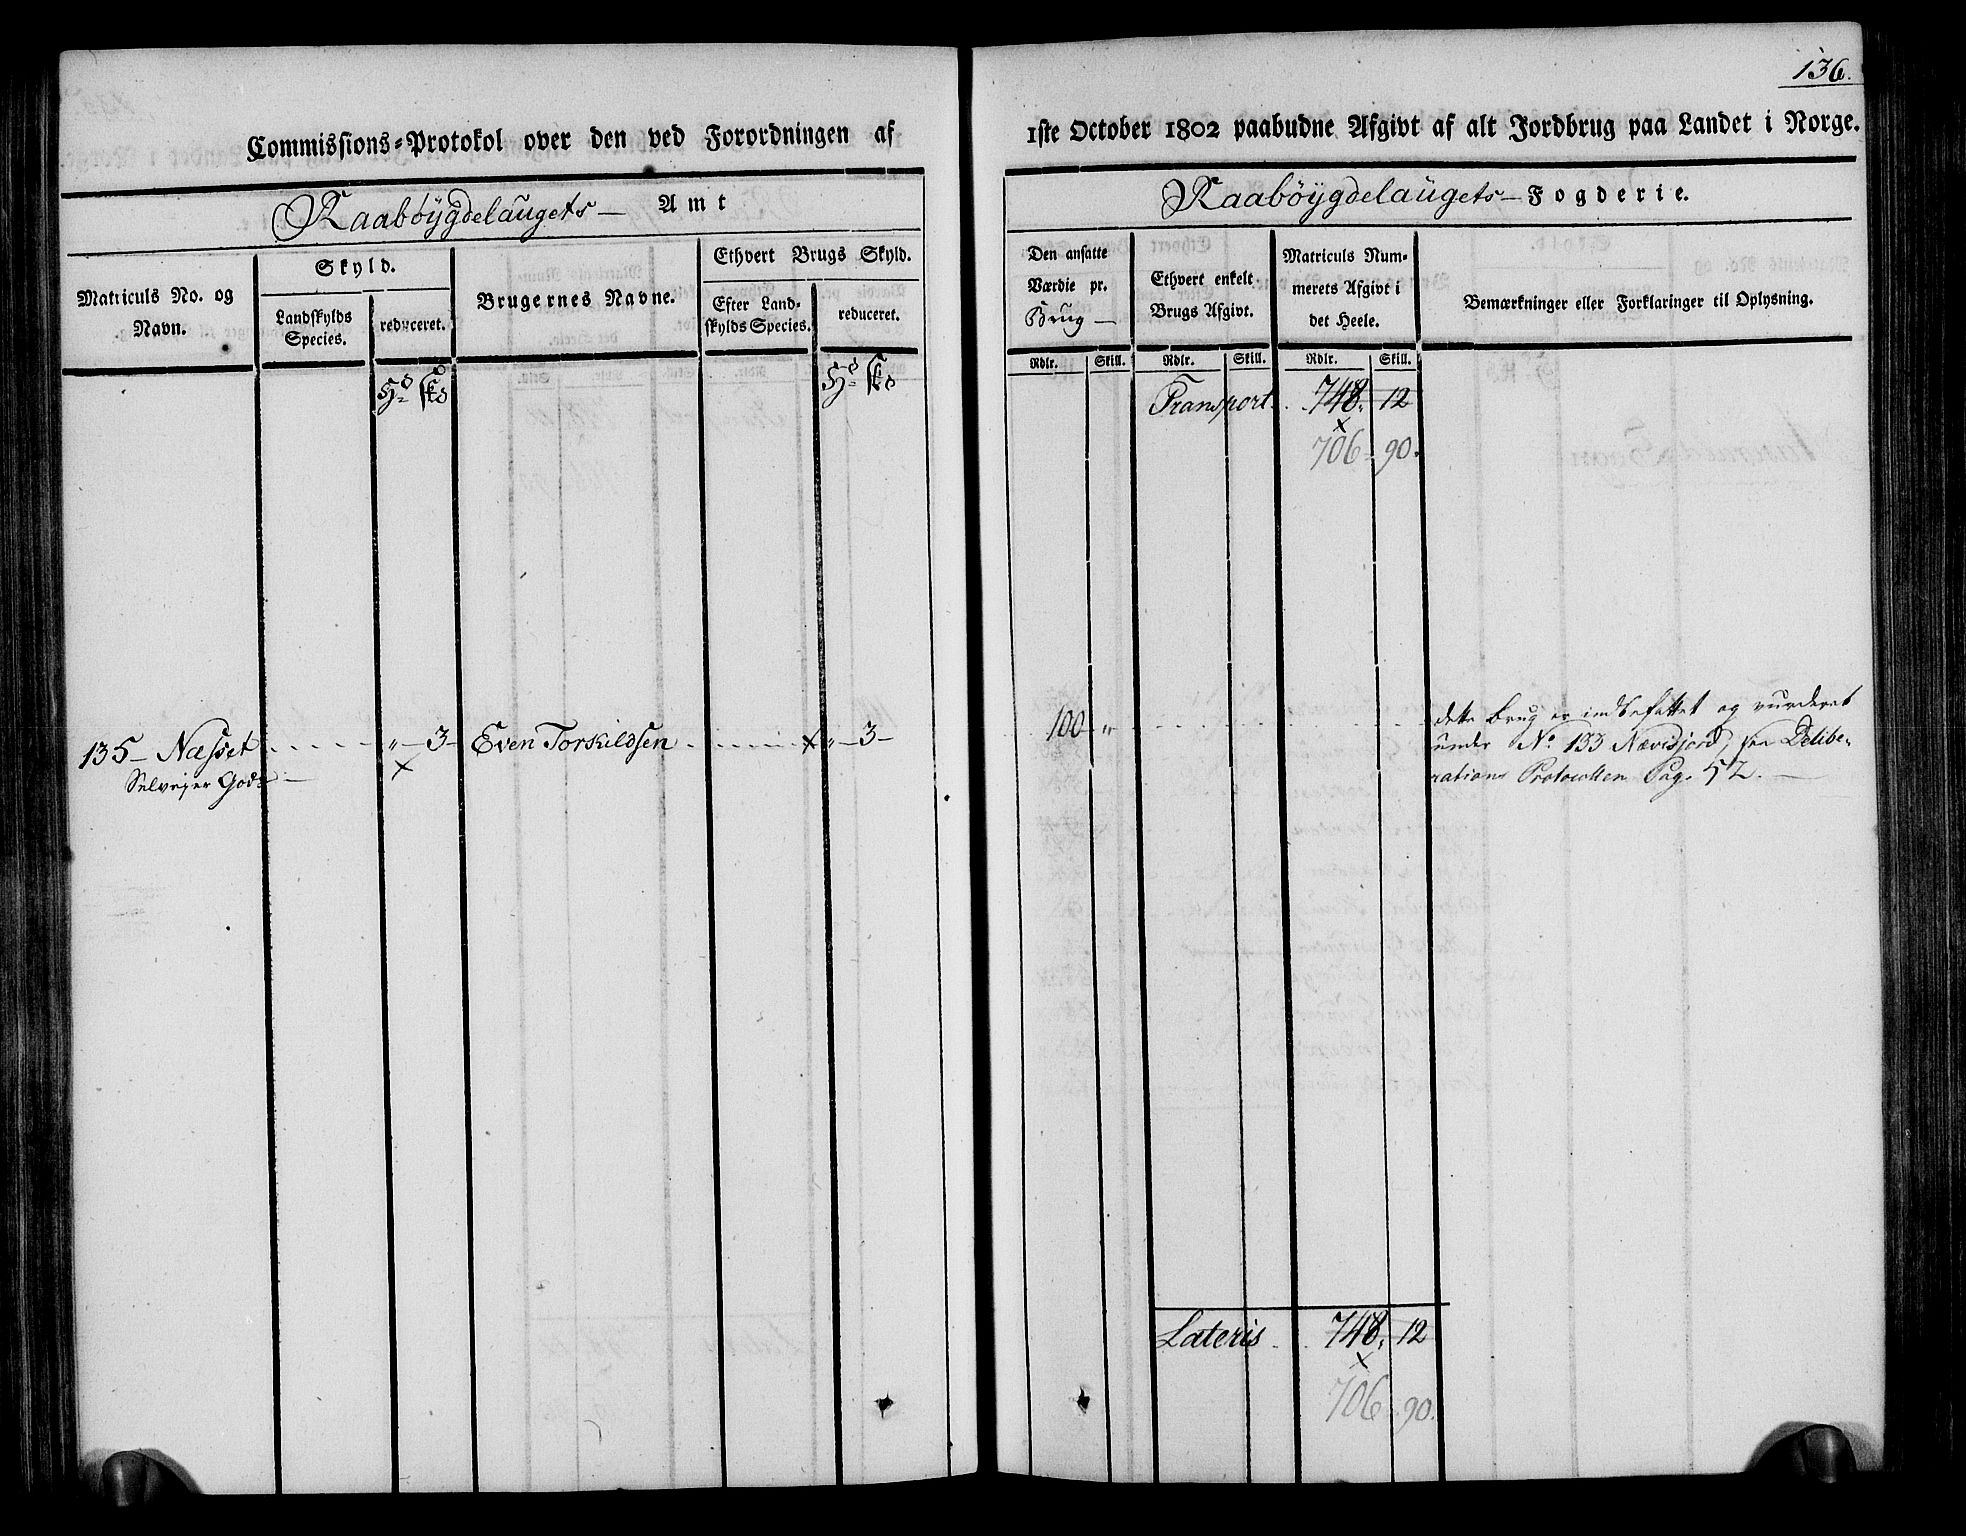 136.
Commissions-Protokol over den ved Forordningen af
1ste October 1802 paabudne Afgivt af alt Jordbrug paa Landet i Norge.
Raabøygdelaugets — Amt
Raabøygdelaugets — Fogderie.
Matriculs No. og Navn.
Skyld.
Landskylds Species.
reduceret.
Brugernes Navne.
Ethvert Brugs Skyld.
Efter Landskylds Species.
reduceret.
Den ansatte Værdie pr. Brug —
Ethvert enkelt Brugs Afgivt.
Matriculs Nummerets Afgivt i det Heele.
Bemærkninger eller Forklaringer til Oplysning.
Rdlr. Skill. Rdlr. Skill. Rdlr. Skill.
Transport. 748. 12
706. 90.
135 — Næsset „ — 3 — Even Torkildsen „ — 3 — 100 „
Selvejer Gods —
dette Brug er indbefattet og vurderet
under No 133 Nævisjord, see Delibe-
rations Protocollen Pag. 52. —
Lateris 748. 12
706. 90.